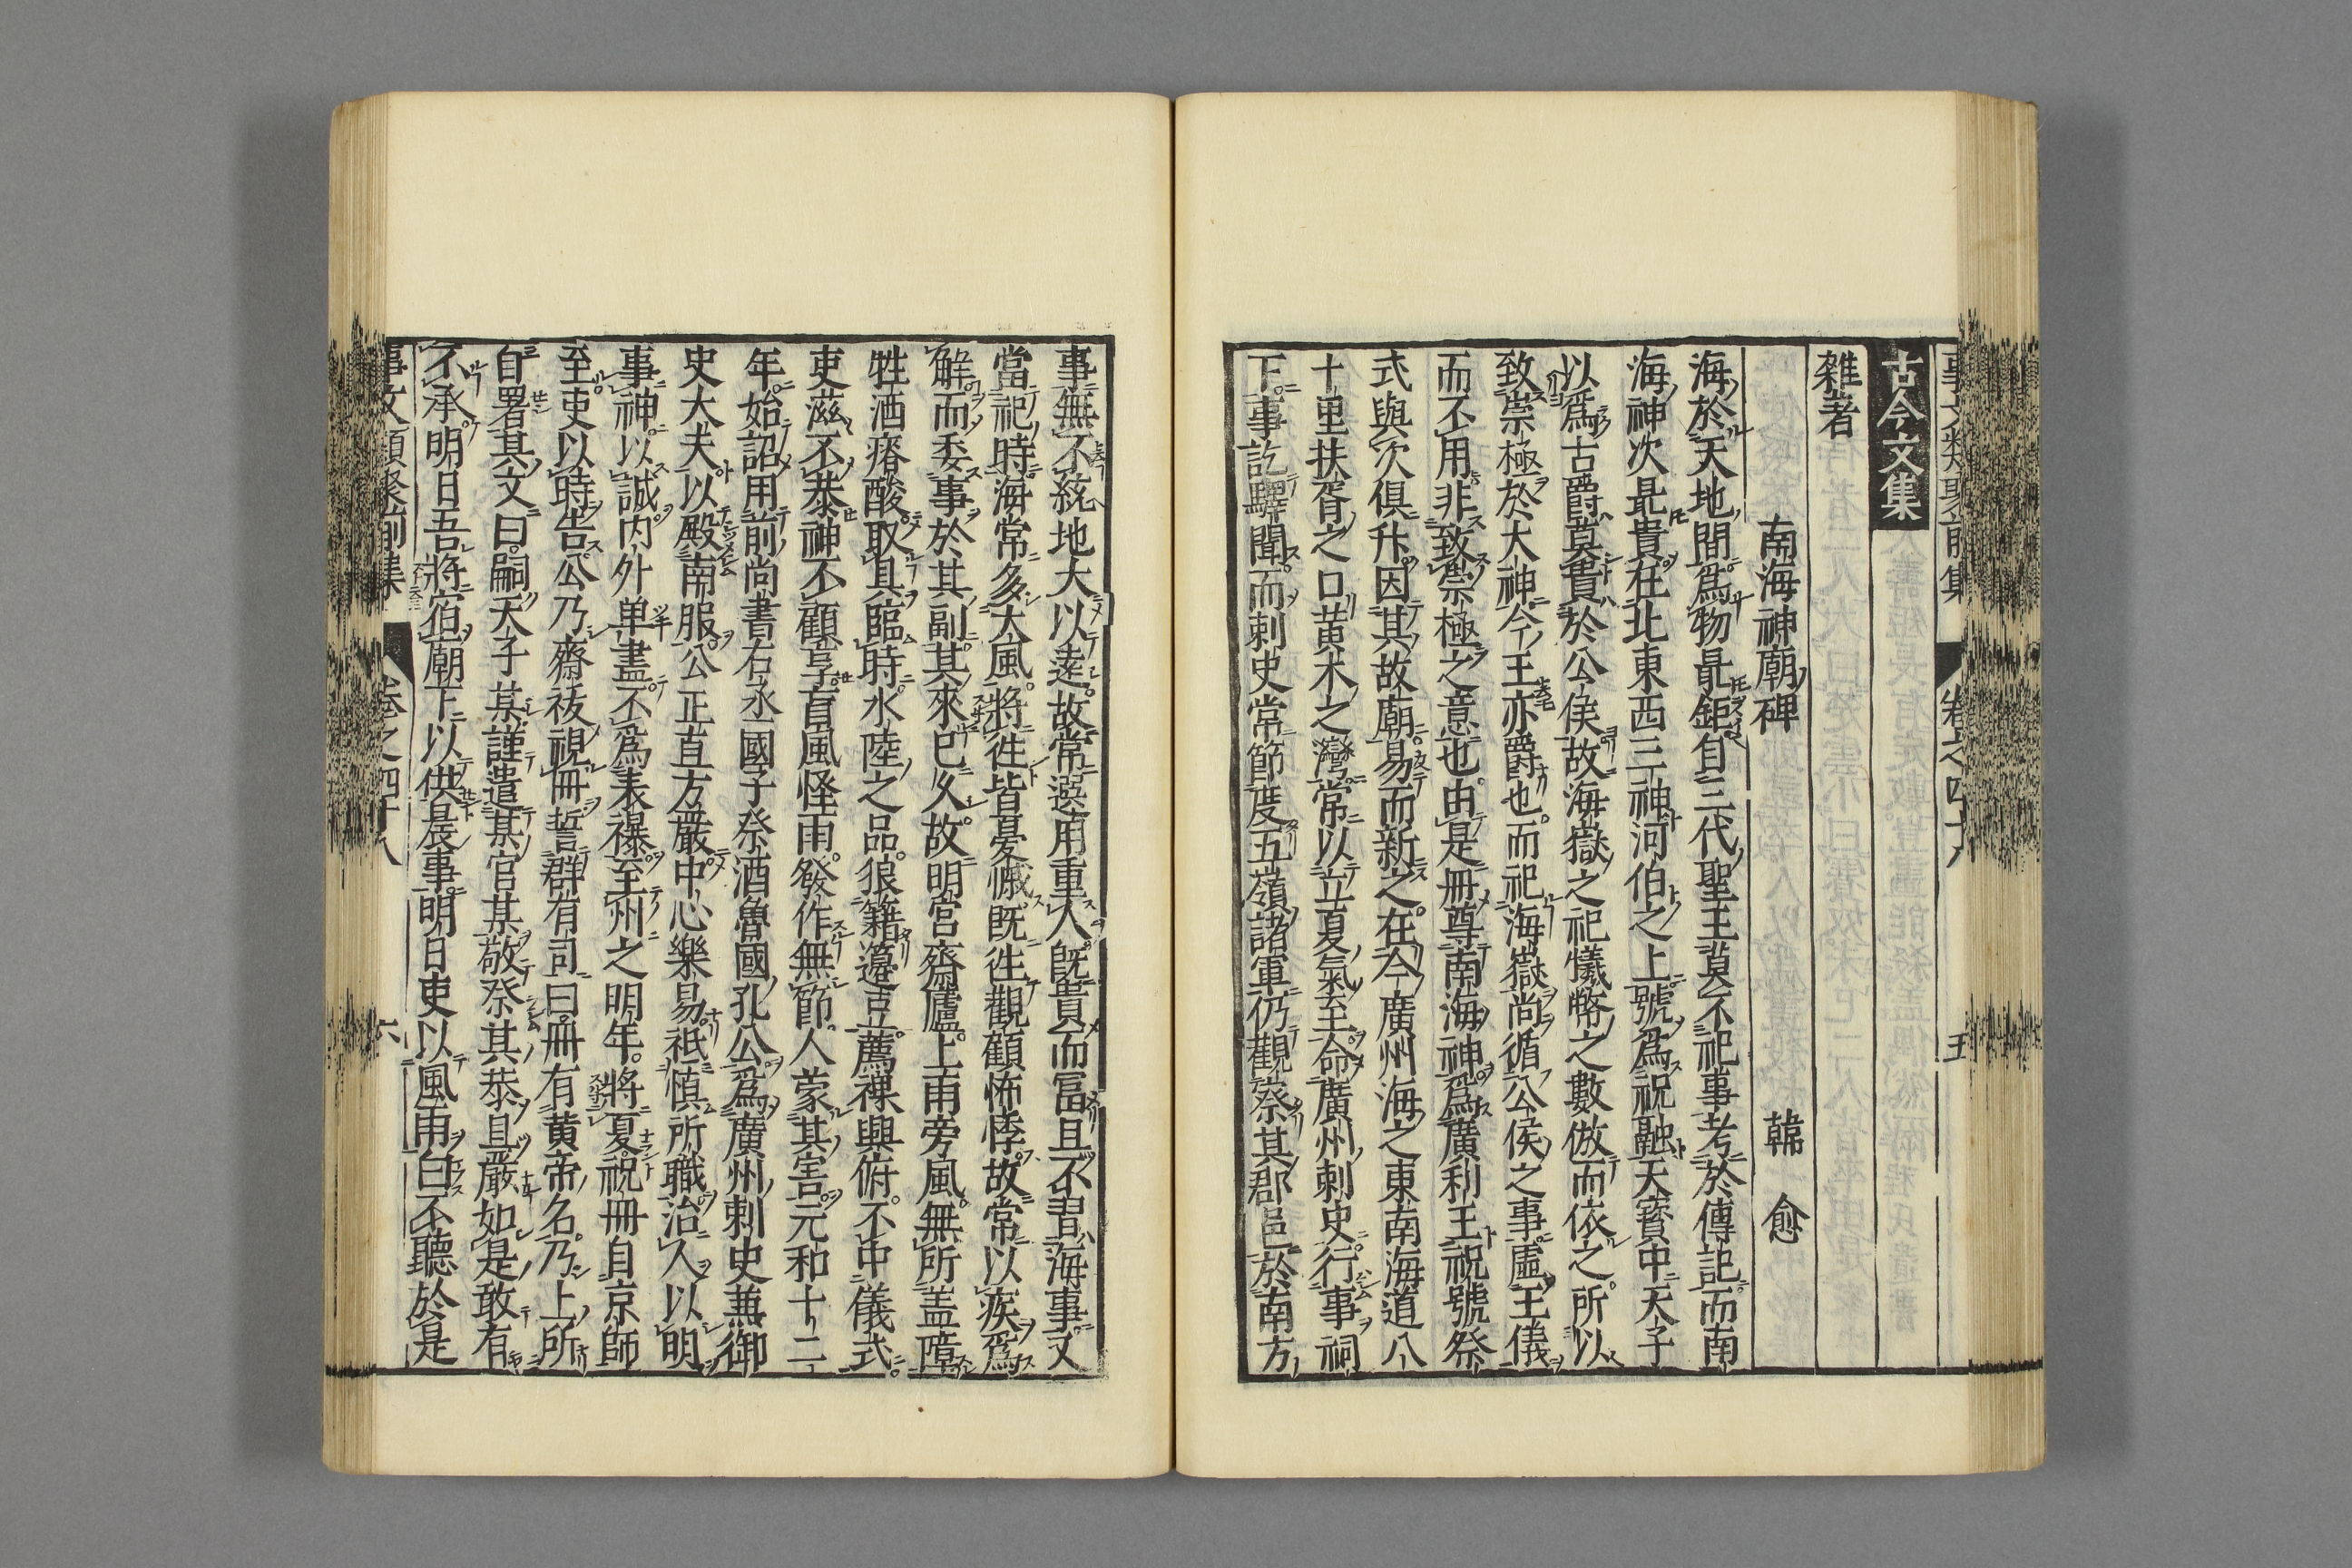 事文類聚前集
卷之四十八
五
古今文集
雜著
南海神廟碑
韓愈
海於天地間爲物最鉅自三代聖王莫不祀事考於傳記而南
海神次最貴在北東西三神河伯之上號爲祝融天寶中天子
以爲古爵莫貴於公侯故海嶽之祀犧幣之數倣而依之所以
致崇極於大神今王亦爵也而祀海嶽尚循公侯之事虛王儀
而不用非致崇極之意也由是冊尊南海神爲廣利王祝號祭
式與次俱升因其故廟易而新之在今廣州海之東南海道八
十里扶胥之口黃木之灣常以立夏氣至命廣州刺史行事祠
下事訖驛聞而刺史常節度五嶺諸軍仍觀察其郡邑於南方
事無不統地大以遠故常選用重人旣貴而冨且不習海事又
當祀時海常多大風將徃皆憂慽旣徃觀顧怖悸故常以疾爲
解而委事於其副其來已久故明宮齋廬上雨旁風無所盖障
牲酒瘠酸取具臨時水陸之品狼籍籩豆薦祼興俯不中儀式
吏滋不恭神不顧享盲風怪雨發作無節人蒙其害元和十二
年始詔用前尚書右丞國子祭酒魯國孔公爲廣州刺史兼御
史大夫以殿南服公正直方嚴中心樂易祗愼所職治人以明
事神以誠內外单盡不爲表襮至州之明年將夏祝冊自京師
至吏以時告公乃齋祓視冊誓群有司曰冊有黃帝名乃上所
自署其文曰嗣天子某謹遣某官某敬祭其恭且嚴如是敢有
不承明日吾將宿廟下以供晨事明日吏以風雨白不聽於是
事文類聚前集
卷之四十八
六